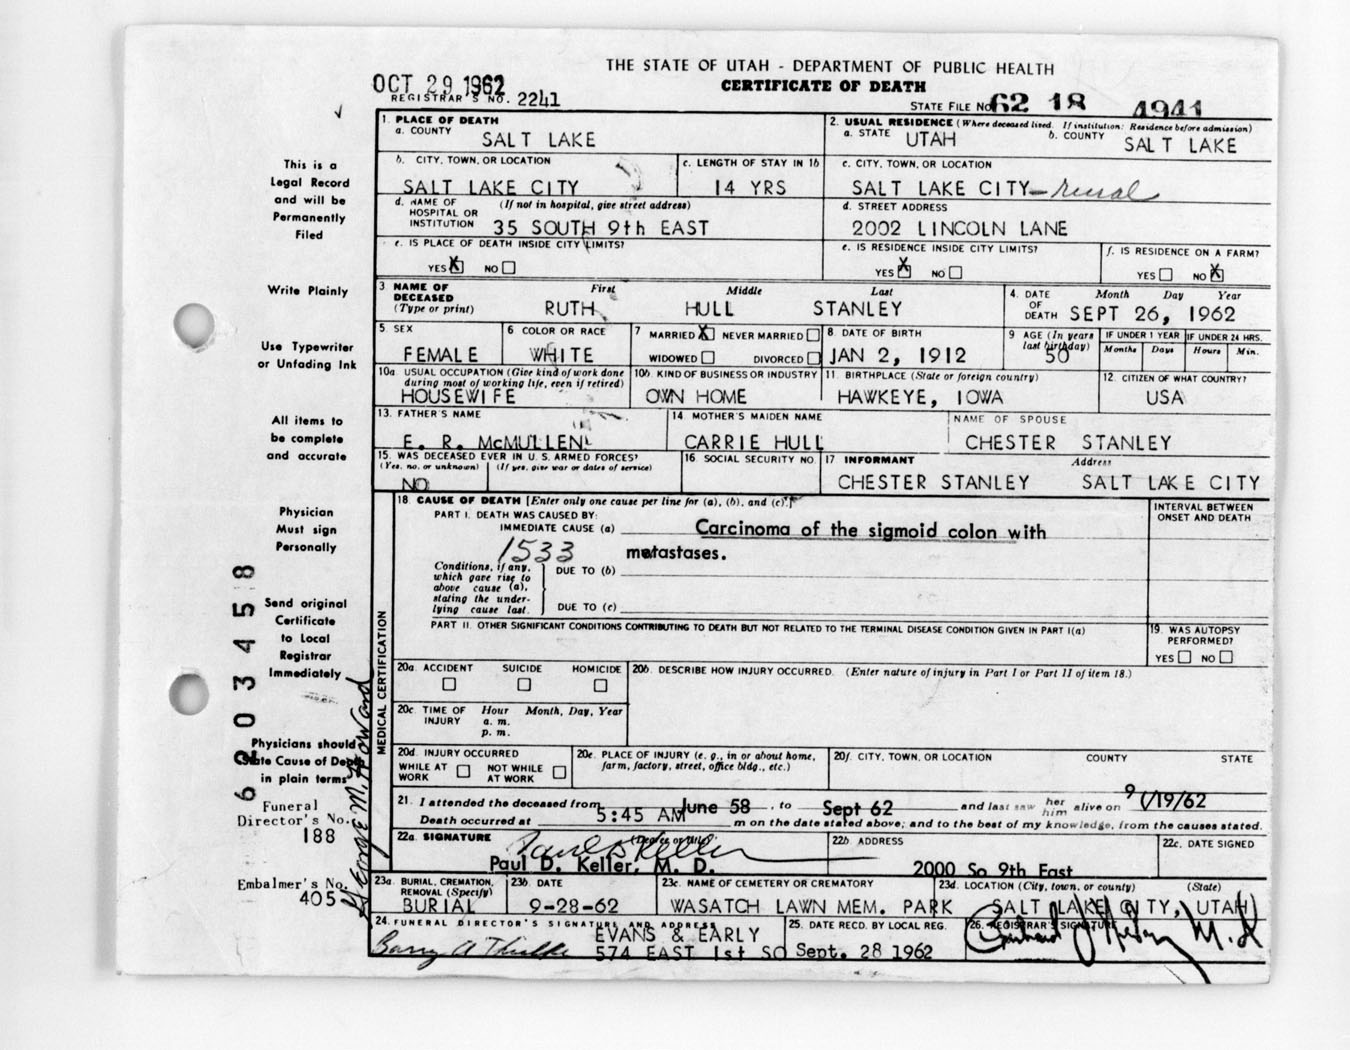 THE STATE OF UTAH - DEPARTMENT OF PUBLIC HEALTH
OCT 29 1962
CERTIFICATE OF DEATH
REGISTRAR'S NO. 2241
STATE FILE NO. 62 18 4941
1. PLACE OF DEATH
a. COUNTY SALT LAKE
2. USUAL RESIDENCE (Where deceased lived. If institution: Residence before admission)
a. STATE UTAH b. COUNTY SALT LAKE
b. CITY, TOWN, OR LOCATION SALT LAKE CITY
c. LENGTH OF STAY IN 1b 14 YRS
c. CITY, TOWN, OR LOCATION SALT LAKE CITY - rural
d. NAME OF HOSPITAL OR INSTITUTION (If not in hospital, give street address) 35 SOUTH 9th EAST
d. STREET ADDRESS 2002 LINCOLN LANE
e. IS PLACE OF DEATH INSIDE CITY LIMITS? YES X NO
e. IS RESIDENCE INSIDE CITY LIMITS? YES X NO
f. IS RESIDENCE ON A FARM? YES NO X
3. NAME OF DECEASED (Type or print) First Middle Last
RUTH HULL STANLEY
4. DATE OF DEATH Month Day Year SEPT 26, 1962
5. SEX FEMALE
6 COLOR OR RACE WHITE
7 MARRIED X NEVER MARRIED WIDOWED DIVORCED
8. DATE OF BIRTH JAN 2, 1912
9 AGE (In years last birthday) 50
IF UNDER 1 YEAR Months Days
IF UNDER 24 HRS. Hours Min.
10a. USUAL OCCUPATION (Give kind of work done during most of working life, even if retired) HOUSEWIFE
10b. KIND OF BUSINESS OR INDUSTRY OWN HOME
11. BIRTHPLACE (State or foreign country) HAWKEYE, IOWA
12. CITIZEN OF WHAT COUNTRY? USA
13. FATHER'S NAME E. R. McMULLEN
14 MOTHER'S MAIDEN NAME CARRIE HULL
NAME OF SPOUSE CHESTER STANLEY
15. WAS DECEASED EVER IN U. S. ARMED FORCES? (Yes, no, or unknown) (If yes, give war or dates of service) NO
16. SOCIAL SECURITY NO.
17 INFORMANT Address
CHESTER STANLEY SALT LAKE CITY
MEDICAL CERTIFICATION
18. CAUSE OF DEATH [Enter only one cause per line for (a), (b), and (c).]
INTERVAL BETWEEN ONSET AND DEATH
PART I. DEATH WAS CAUSED BY:
IMMEDIATE CAUSE (a) Carcinoma of the sigmoid colon with
1533 metastases.
Conditions, if any, which gave rise to above cause (a), stating the underlying cause last.
DUE TO (b)
DUE TO (c)
PART II. OTHER SIGNIFICANT CONDITIONS CONTRIBUTING TO DEATH BUT NOT RELATED TO THE TERMINAL DISEASE CONDITION GIVEN IN PART I(a)
19. WAS AUTOPSY PERFORMED? YES NO
20a. ACCIDENT SUICIDE HOMICIDE
20b. DESCRIBE HOW INJURY OCCURRED. (Enter nature of injury in Part I or Part II of item 18.)
20c. TIME OF INJURY Hour Month, Day, Year
a. m.
p. m.
20d. INJURY OCCURRED
WHILE AT WORK NOT WHILE AT WORK
20e. PLACE OF INJURY (e. g., in or about home, farm, factory, street, office bldg., etc.)
20f. CITY, TOWN, OR LOCATION COUNTY STATE
21. I attended the deceased from June 58, to Sept 62 and last saw her him alive on 9/19/62
Death occurred at 5:45 AM m on the date stated above; and to the best of my knowledge, from the causes stated.
22a. SIGNATURE (Degree or title)
Paul D. Keller
Paul D. Keller, M. D.
22b. ADDRESS 2000 So 9th East
22c. DATE SIGNED
23a. BURIAL, CREMATION, REMOVAL (Specify) BURIAL
23b. DATE 9-28-62
23c. NAME OF CEMETERY OR CREMATORY WASATCH LAWN MEM. PARK
23d. LOCATION (City, town, or county) (State) SALT LAKE CITY, UTAH
24. FUNERAL DIRECTOR'S SIGNATURE AND ADDRESS
EVANS & EARLY
574 EAST 1st SO
25. DATE RECD. BY LOCAL REG. Sept. 28 1962
26. REGISTRAR'S SIGNATURE
This is a
Legal Record
and will be
Permanently
Filed
Write Plainly
Use Typewriter
or Unfading Ink
All items to
be complete
and accurate
Physician
Must sign
Personally
Send original
Certificate
to Local
Registrar
Immediately
Physicians should
State Cause of Death
in plain terms
Funeral
Director's No.
188
Embalmer's No.
405
George M. Howard
62 03458